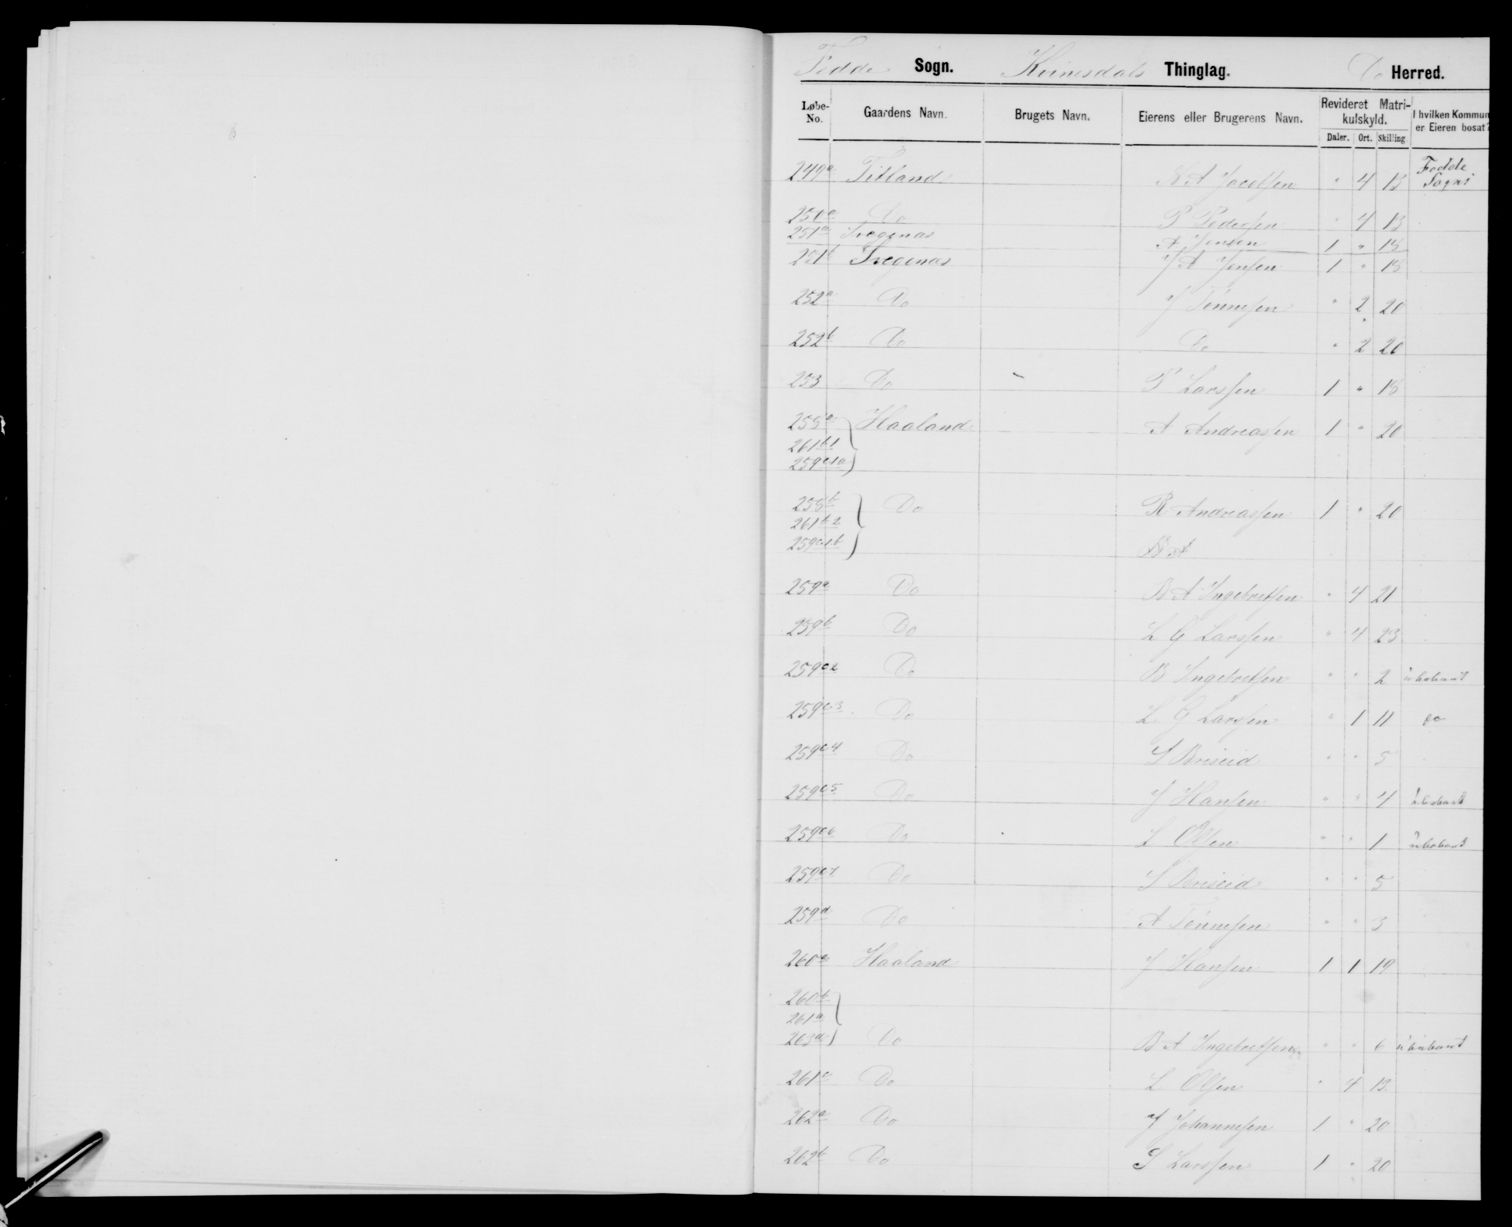 Fedde Sogn. Kvinesdals Thinglag. Do Herred.
Løbe-No. Gaardens Navn. Brugets Navn. Eierens eller Brugerens Navn. Revideret Matrikulskyld. Daler. Ort. Skilling I hvilken Kommun er Eieren bosat?
249a Titland Jacobsen " 4 13 Fedde Sogn
250a Do P Pedersen " 4 13
251a Trægenas A Jensen 1 " 18
251b Trægenas J A Jensen 1 " 18
252a Do J Tønnesen " 2 20
252b Do Do " 2 20
253 Do Larssen 1 " 18
258a Haaland A Andreassen 1 " 20
261b1
259c1a
258b Do R Andreassen 1 " 20
261b2
259c1b B A
259a Do B A Ingebretsen " 4 21
259b Do L G Larssen " 4 23
259c2 Do B Ingebretsen " " 2 ubeboet
259c3 Do L G Larssen " 1 11 do
259c4 Do S Briseid " " 5
259c5 Do J Hansen " " 4 ubeboet
259c6 Do L Olsen " " 1 ubeboet
259c7 Do S Briseid " " 5
259d Do A Tønnesen " " 3
260a Haaland J Hansen 1 1 19
260b
261a
263a Do B A Ingebretsen " " 6 ubeboet
261c Do L Olsen " 4 13
262a Do J Johannesen 1 " 20
262b Do S Larssen 1 " 20